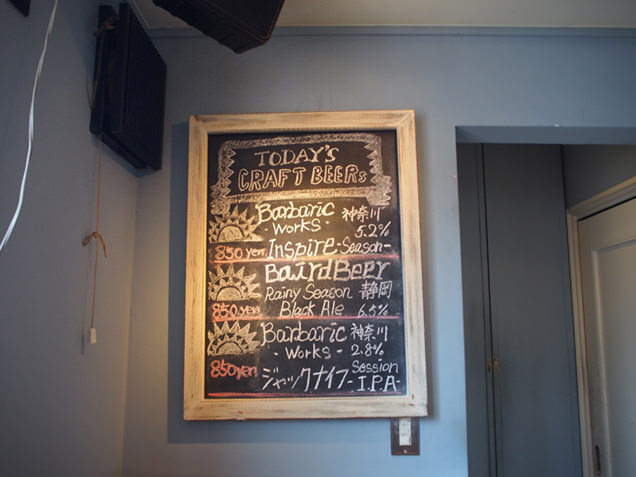 TODAY'S
CRAFT BEERS
Barbaric 神奈川
- Works - 5.2%
850yen Inspire -Season-
Baird Beer
Rainy Season 静岡
850yen Black Ale 6.5%
Barbaric 神奈川
- Works - 2.8%
850yen Session
ジャックナイフ - I.P.A -